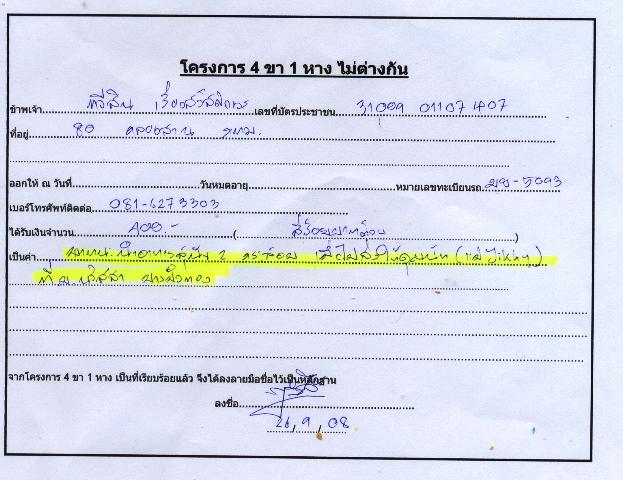 โครงการ 4 ขา 1 หาง ไม่ต่างกัน
ข้าพเจ้า ทวีสิน เลขที่บัตรประชาชน 31009 01107 407
ที่อยู่ 80 คลองสาน กทม.
ออกให้ ณ วันที่ วันหมดอายุ หมายเลขทะเบียนรถ มย-5093
เบอร์โทรศัพท์ติดต่อ 081-6273303
ได้รับเงินจำนวน 400.- ( สี่ร้อยบาทถ้วน )
เป็นค่า 2 กระสอบ เพื่อไปส่งให้คุณ
บางบัวทอง
จากโครงการ 4 ขา 1 หาง เป็นที่เรียบร้อยแล้ว จึงได้ลงลายมือชื่อไว้เป็นหลักฐาน
ลงชื่อ
26, 9, 08